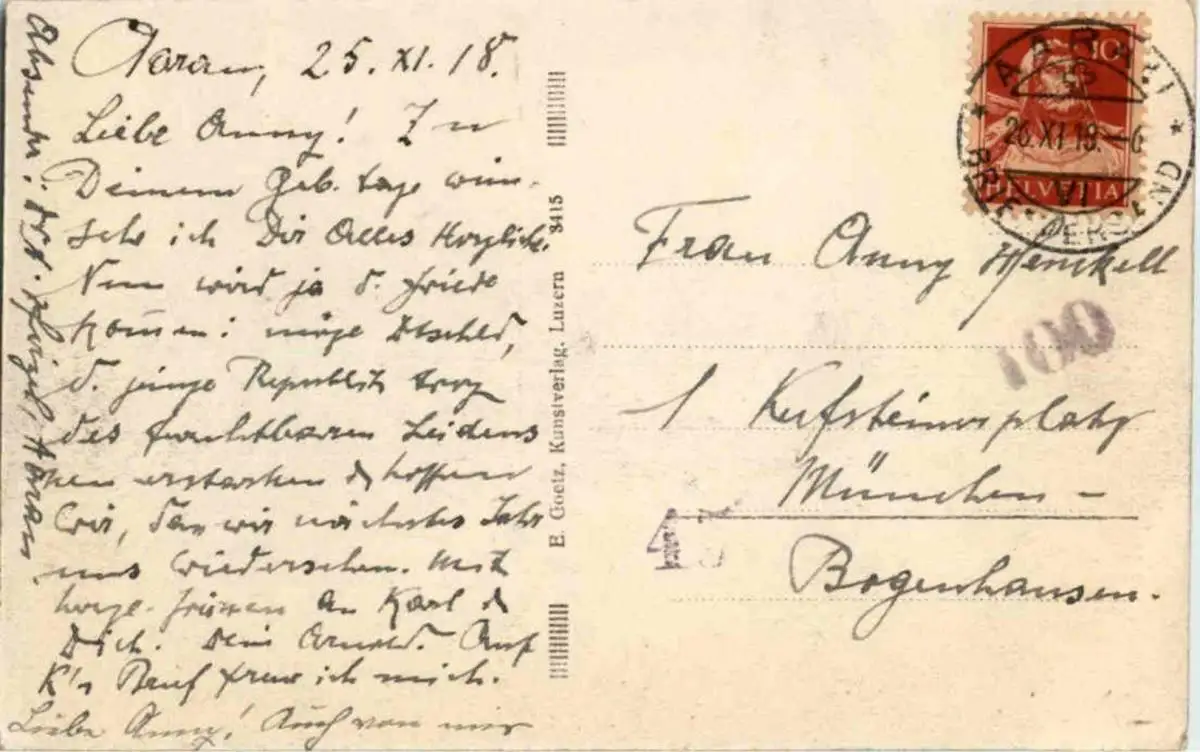 Aarau, 25. XI. 18.
Liebe Anny! Zu
Deinem Geb. tage wün-
sche ich Dir Alles Herzliche.
Nun wird ja d. Friede
kommen: möge Dtschld,
d. junge Republik trotz
des furchtbaren Leidens
erstarken & hoffen
wir, dass wir nächstes Jahr
uns wiedersehen. Mit
herzl. Grüssen an Karl &
Dich. Dein Arnold. Auf
K's Brief freue ich mich.
Liebe Anny! Auch von mir
Absender: Aarau
E. Goetz, Kunstverlag, Luzern 3415
10
HELVETIA
AARAU 1
26.XI.18.-6
VI
BRIEFVERSAND
Frau Anny Henckell
1 Kufsteinerplatz
München -
Bogenhausen.
100